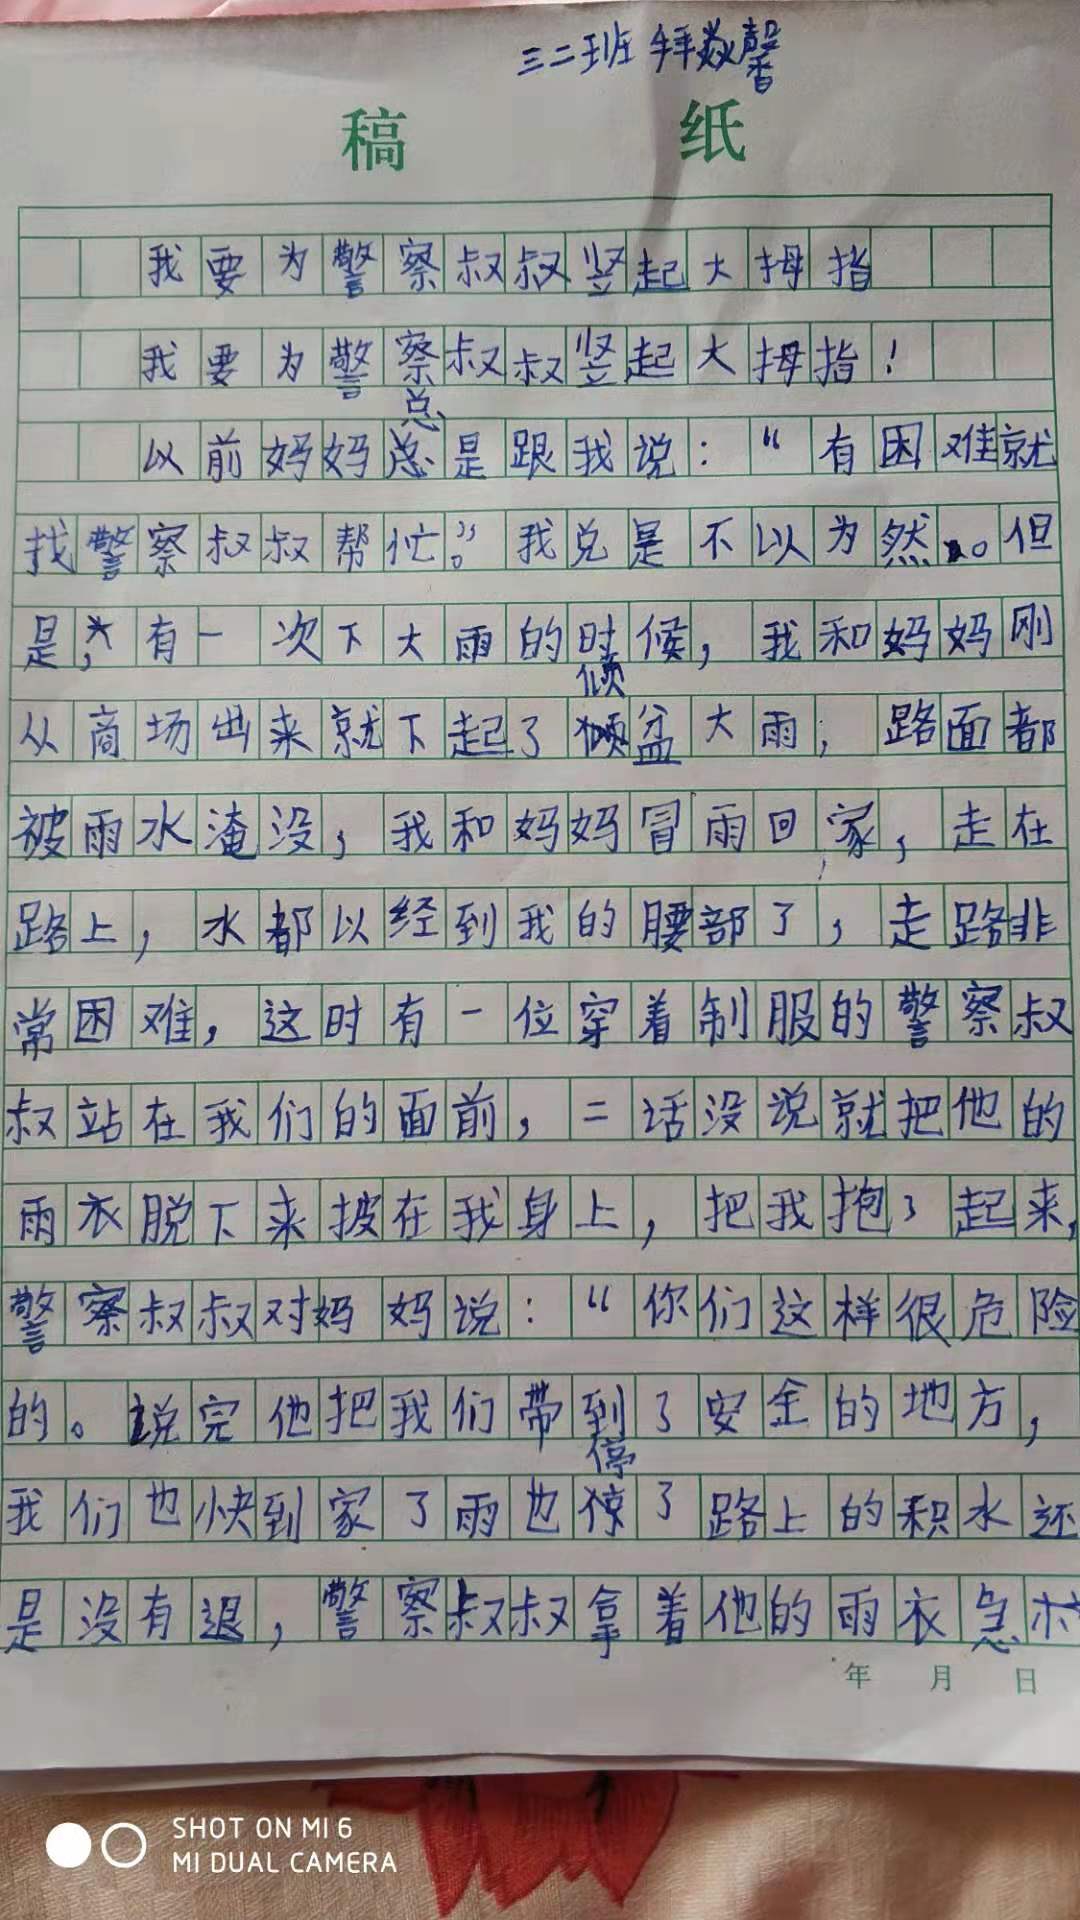 三二班 拜薮馨
稿 纸
我要为警察叔叔竖起大拇指
我要为警察叔叔竖起大拇指！
总
以前妈妈总是跟我说：“有困难就
找警察叔叔帮忙。”我总是不以为然。但
是，有一次下大雨的时候，我和妈妈刚
倾
从商场出来就下起了倾盆大雨，路面都
被雨水淹没，我和妈妈冒雨回家，走在
路上，水都以经到我的腰部了，走路非
常困难，这时有一位穿着制服的警察叔
叔站在我们的面前，二话没说就把他的
雨衣脱下来披在我身上，把我抱了起来，
警察叔叔对妈妈说：“你们这样很危险
的。说完他把我们带到了安全的地方，
停
我们也快到家了雨也惊了路上的积水还
是没有退，警察叔叔拿着他的雨衣急忙
年 月 日
SHOT ON MI 6
MI DUAL CAMERA